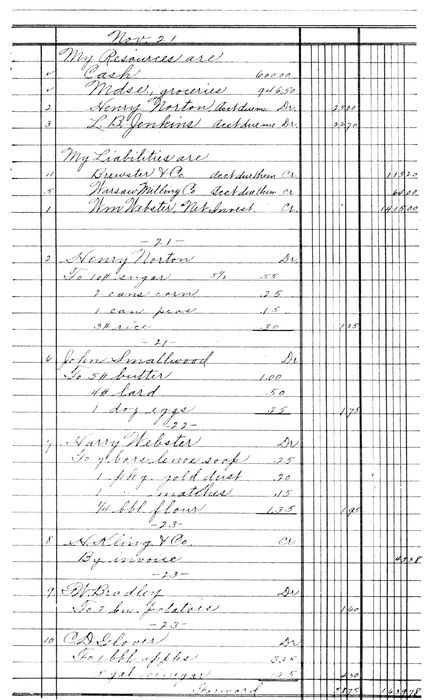 Nov. 21
My Resources are
✓ Cash 600.00
✓ Mdse, groceries 946.50
2 Henry Norton Acct due me Dr. 25.00
3 L. B. Jenkins acct due me Dr. 22.70
My Liabilities are
4 Brewster & Co acct due them Cr. 115.20
5 Warsaw Milling Co acct due them Cr 64.00
1 Wm Webster, Net Invest. Cr. 1415.00
—21—
2 Henry Norton Dr.
To 10# sugar 5½ .55
2 cans corn .25
1 can peas .15
3# rice .30 1.25
—21—
6 John Smallwood Dr
To 5# butter 1.00
4# lard .50
1 doz eggs .25 1.75
—22—
7 Harry Webster Dr
To 7 bars lenox soap .25
1 pkg. gold dust .20
1 matches .15
¼ bbl flour 1.35 1.95
—23—
8 H. Kling & Co. Cr
By invoice 43.58
—23—
9 Bradley Dr
To 2 bu. potatoes 1.60
—23—
10 C D Glover Dr
To 1 bbl apples 3.25
gal vinegar
Forward 1637.78